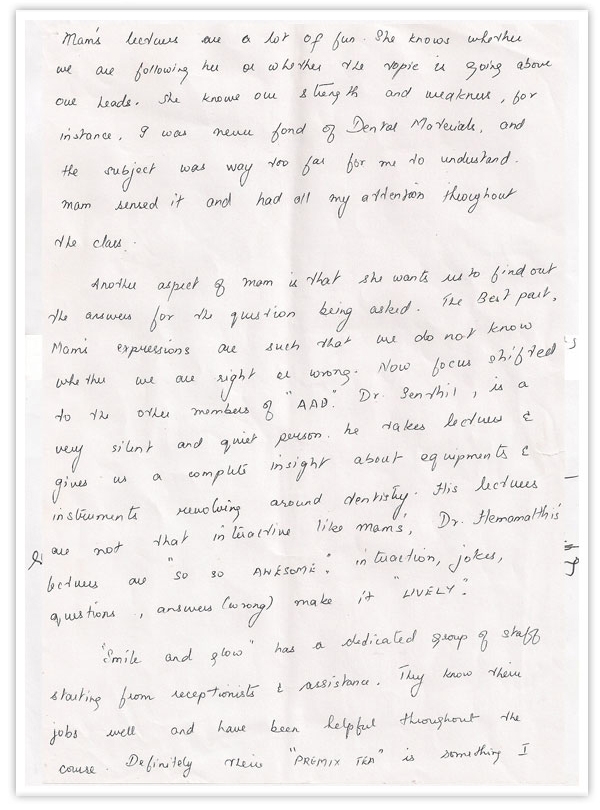 Mam's lectures are a lot of fun. She knows whether
we are following her or whether the topic is going above
our heads. She knows our strength and weakness, for
instance, I was never fond of Dental Materials, and
the subject was way too far for me to understand.
mam sensed it and had all my attention throughout
the class.
Another aspect of mam is that she wants us to find out
the answers for the question being asked. The Best part,
Mam's expressions are such that we do not know
whether we are right or wrong. Now focus shifted
to the other members of "AAD". Dr. Senthil, is a
very silent and quiet person. he takes lectures &
gives us a complete insight about equipments &
instruments revolving around dentistry. His lectures
are not that interactive like mam's, Dr. Hemamalthis'
lectures are "so so AWESOME". interaction, jokes,
questions, answers (wrong) make it "LIVELY".
"Smile and glow" has a dedicated group of staff
starting from receptionists & assistance. They know their
jobs well and have been helpful throughout the
course. Definitely their "PREMIX TEA" is something I